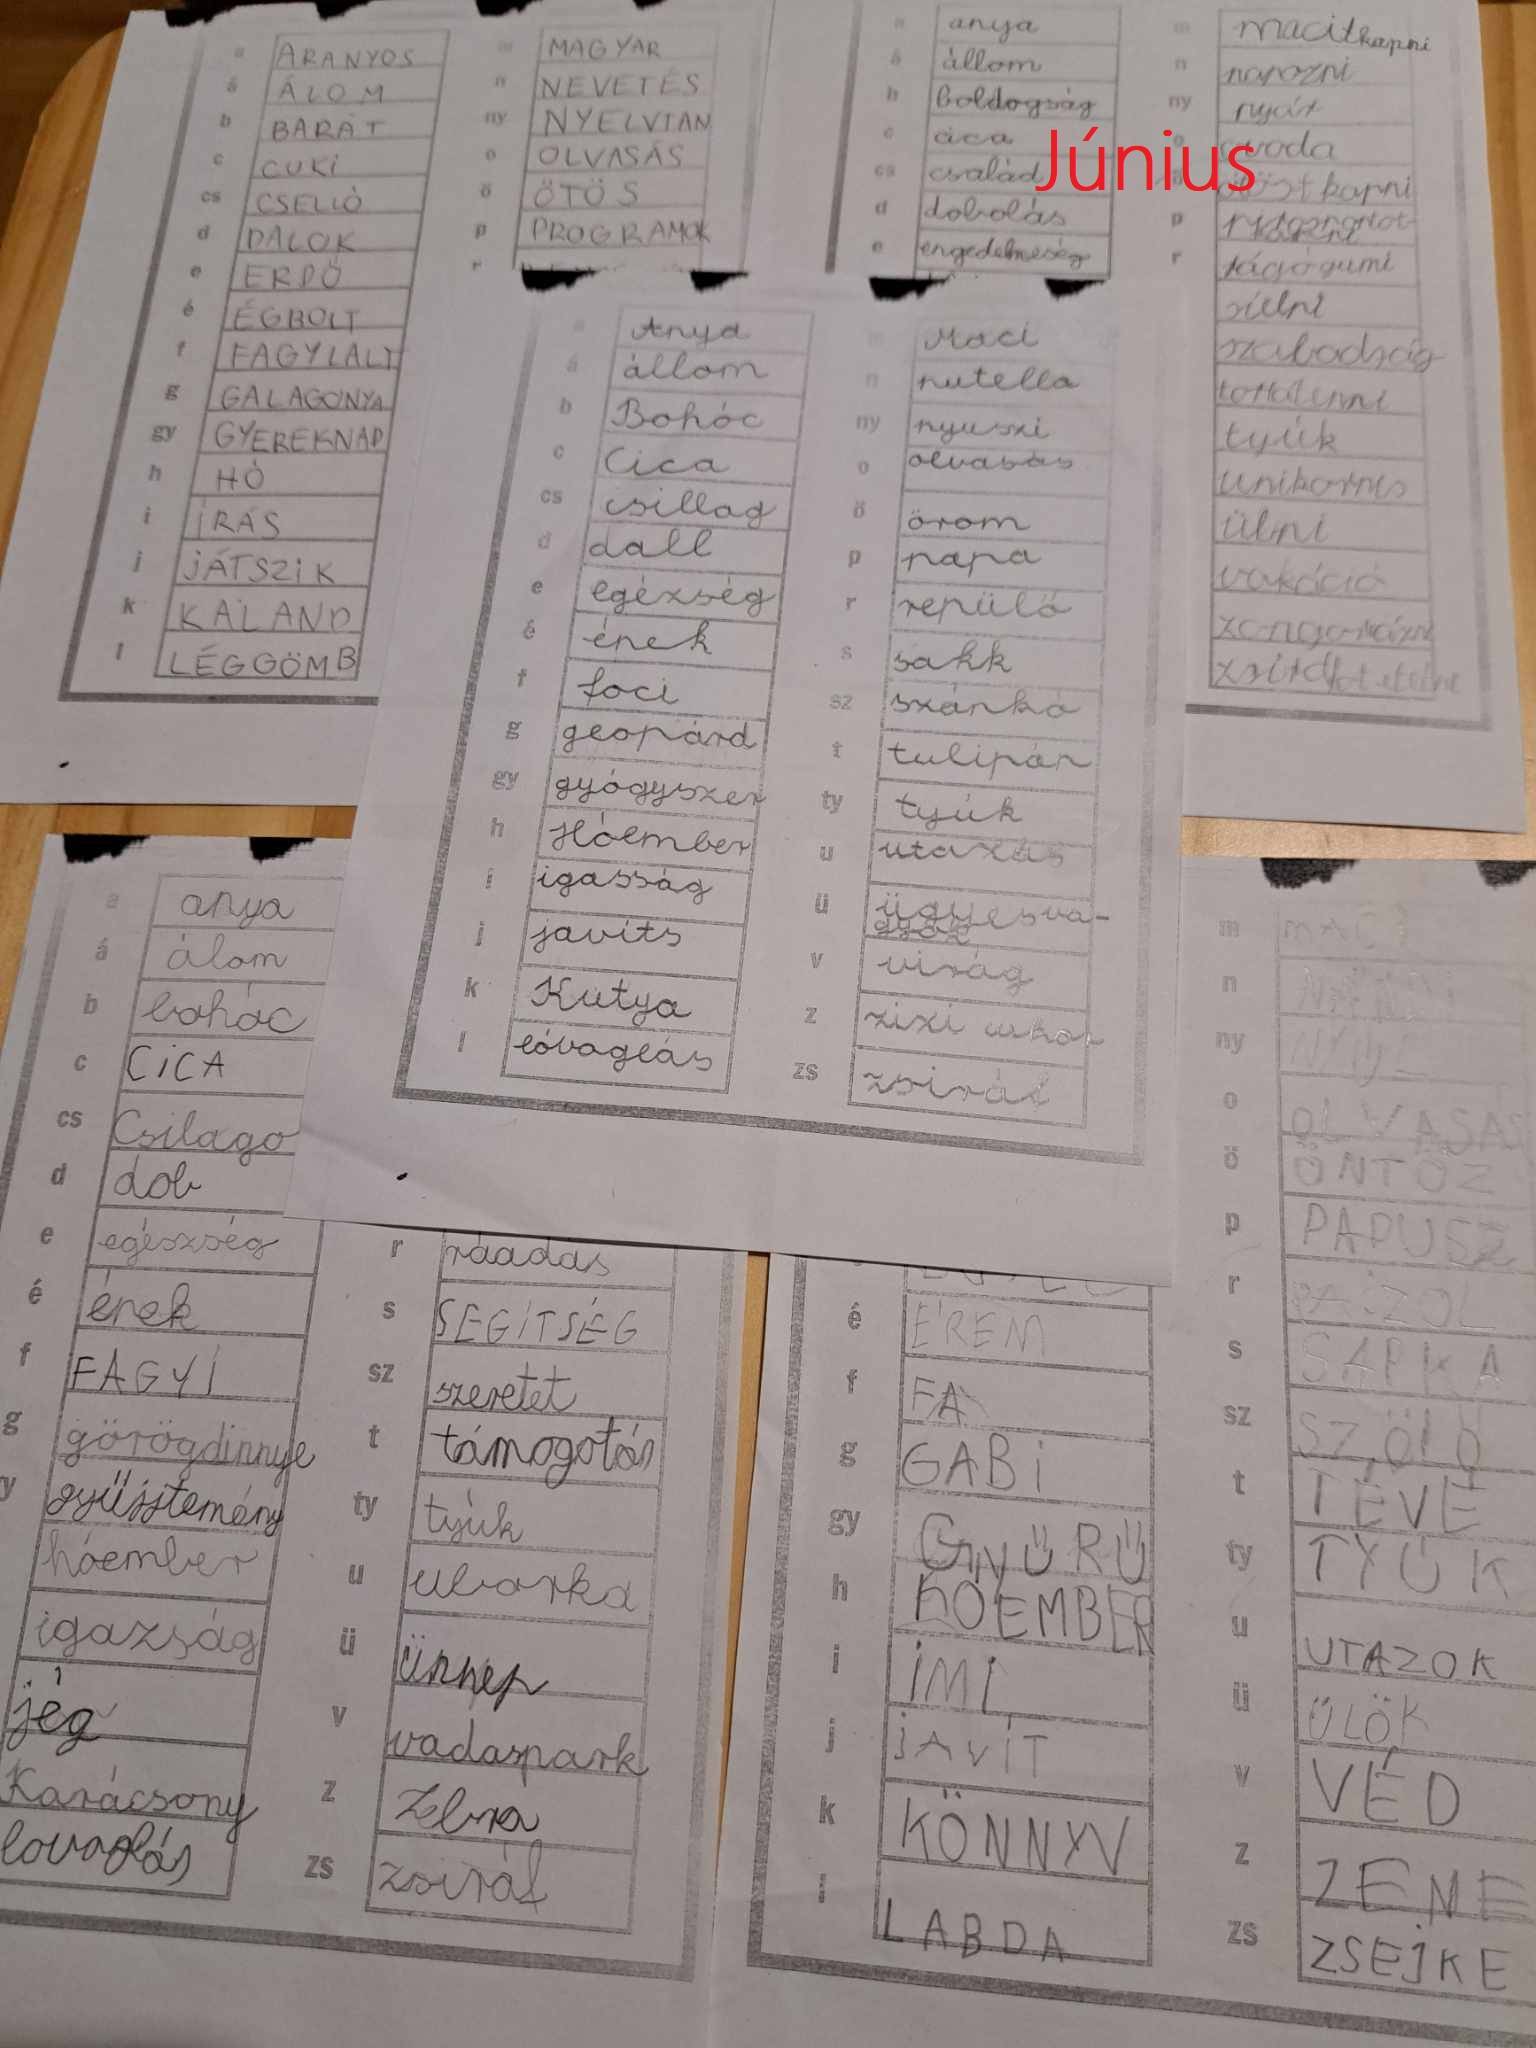 a ARANYOS
á ÁLOM
b BARÁT
c CUKI
cs CSELLÓ
d DALOK
e ERDŐ
é ÉGBOLT
f FAGYLALT
g GALAGONYA
gy GYEREKNAP
h HÓ
i ÍRÁS
j JÁTSZIK
k KALAND
l LÉGGÖMB
m MAGYAR
n NEVETÉS
ny NYELVTAN
o OLVASÁS
ö ÖTÖS
p PROGRAMOK
r
a anya
á állom
b boldogság
c cica
cs család
d dobolás
e engedelmeség
Június
m macit kapni
n napozni
ny nyár
o ovoda
ö ötöst kapni
p
r rágógumi
síelni
szabadság
tyúk
unikornis
ülni
vakáció
a Anya
á állom
b Bohóc
c Cica
cs csillag
d dall
e egézség
é ének
f foci
g geopárd
gy gyógyszer
h Hóember
i igasság
j javíts
k Kutya
l lóvaglás
m Maci
n nutella
ny nyuszi
o olvasás
ö öröm
p papa
r repülő
s sakk
sz szánkó
t tulipán
ty tyúk
u utazás
ü ügyesva-
gyok
v virág
z zizi cukor
zs zsiráf
a anya
á álom
b bohóc
c CICA
cs Csilago
d dob
e egészség
é ének
f FAGYI
g görögdinnye
y gyűjjtemény
hóember
igazság
jég
Karácsony
lovaglás
r ráadás
s SEGÍTSÉG
sz szeretet
t támogotás
ty tyúk
u uborka
ü ünnep
v vadaspark
z Zebra
zs zsiráf
é ÉREM
f FA
g GABI
gy GYŰRŰ
h HÓEMBER
i IMI
j JAVÍT
k KÖNNYV
l LABDA
m MACI
n
ny
o OLVASÁS
ö ÖNTÖZ
p PAPUSZ
r RAJZOL
s SAPKA
sz SZŐLŐ
t TEVE
ty TYÚK
u UTAZOK
ü ÜLÖK
v VÉD
z ZENE
zs ZSEJKE